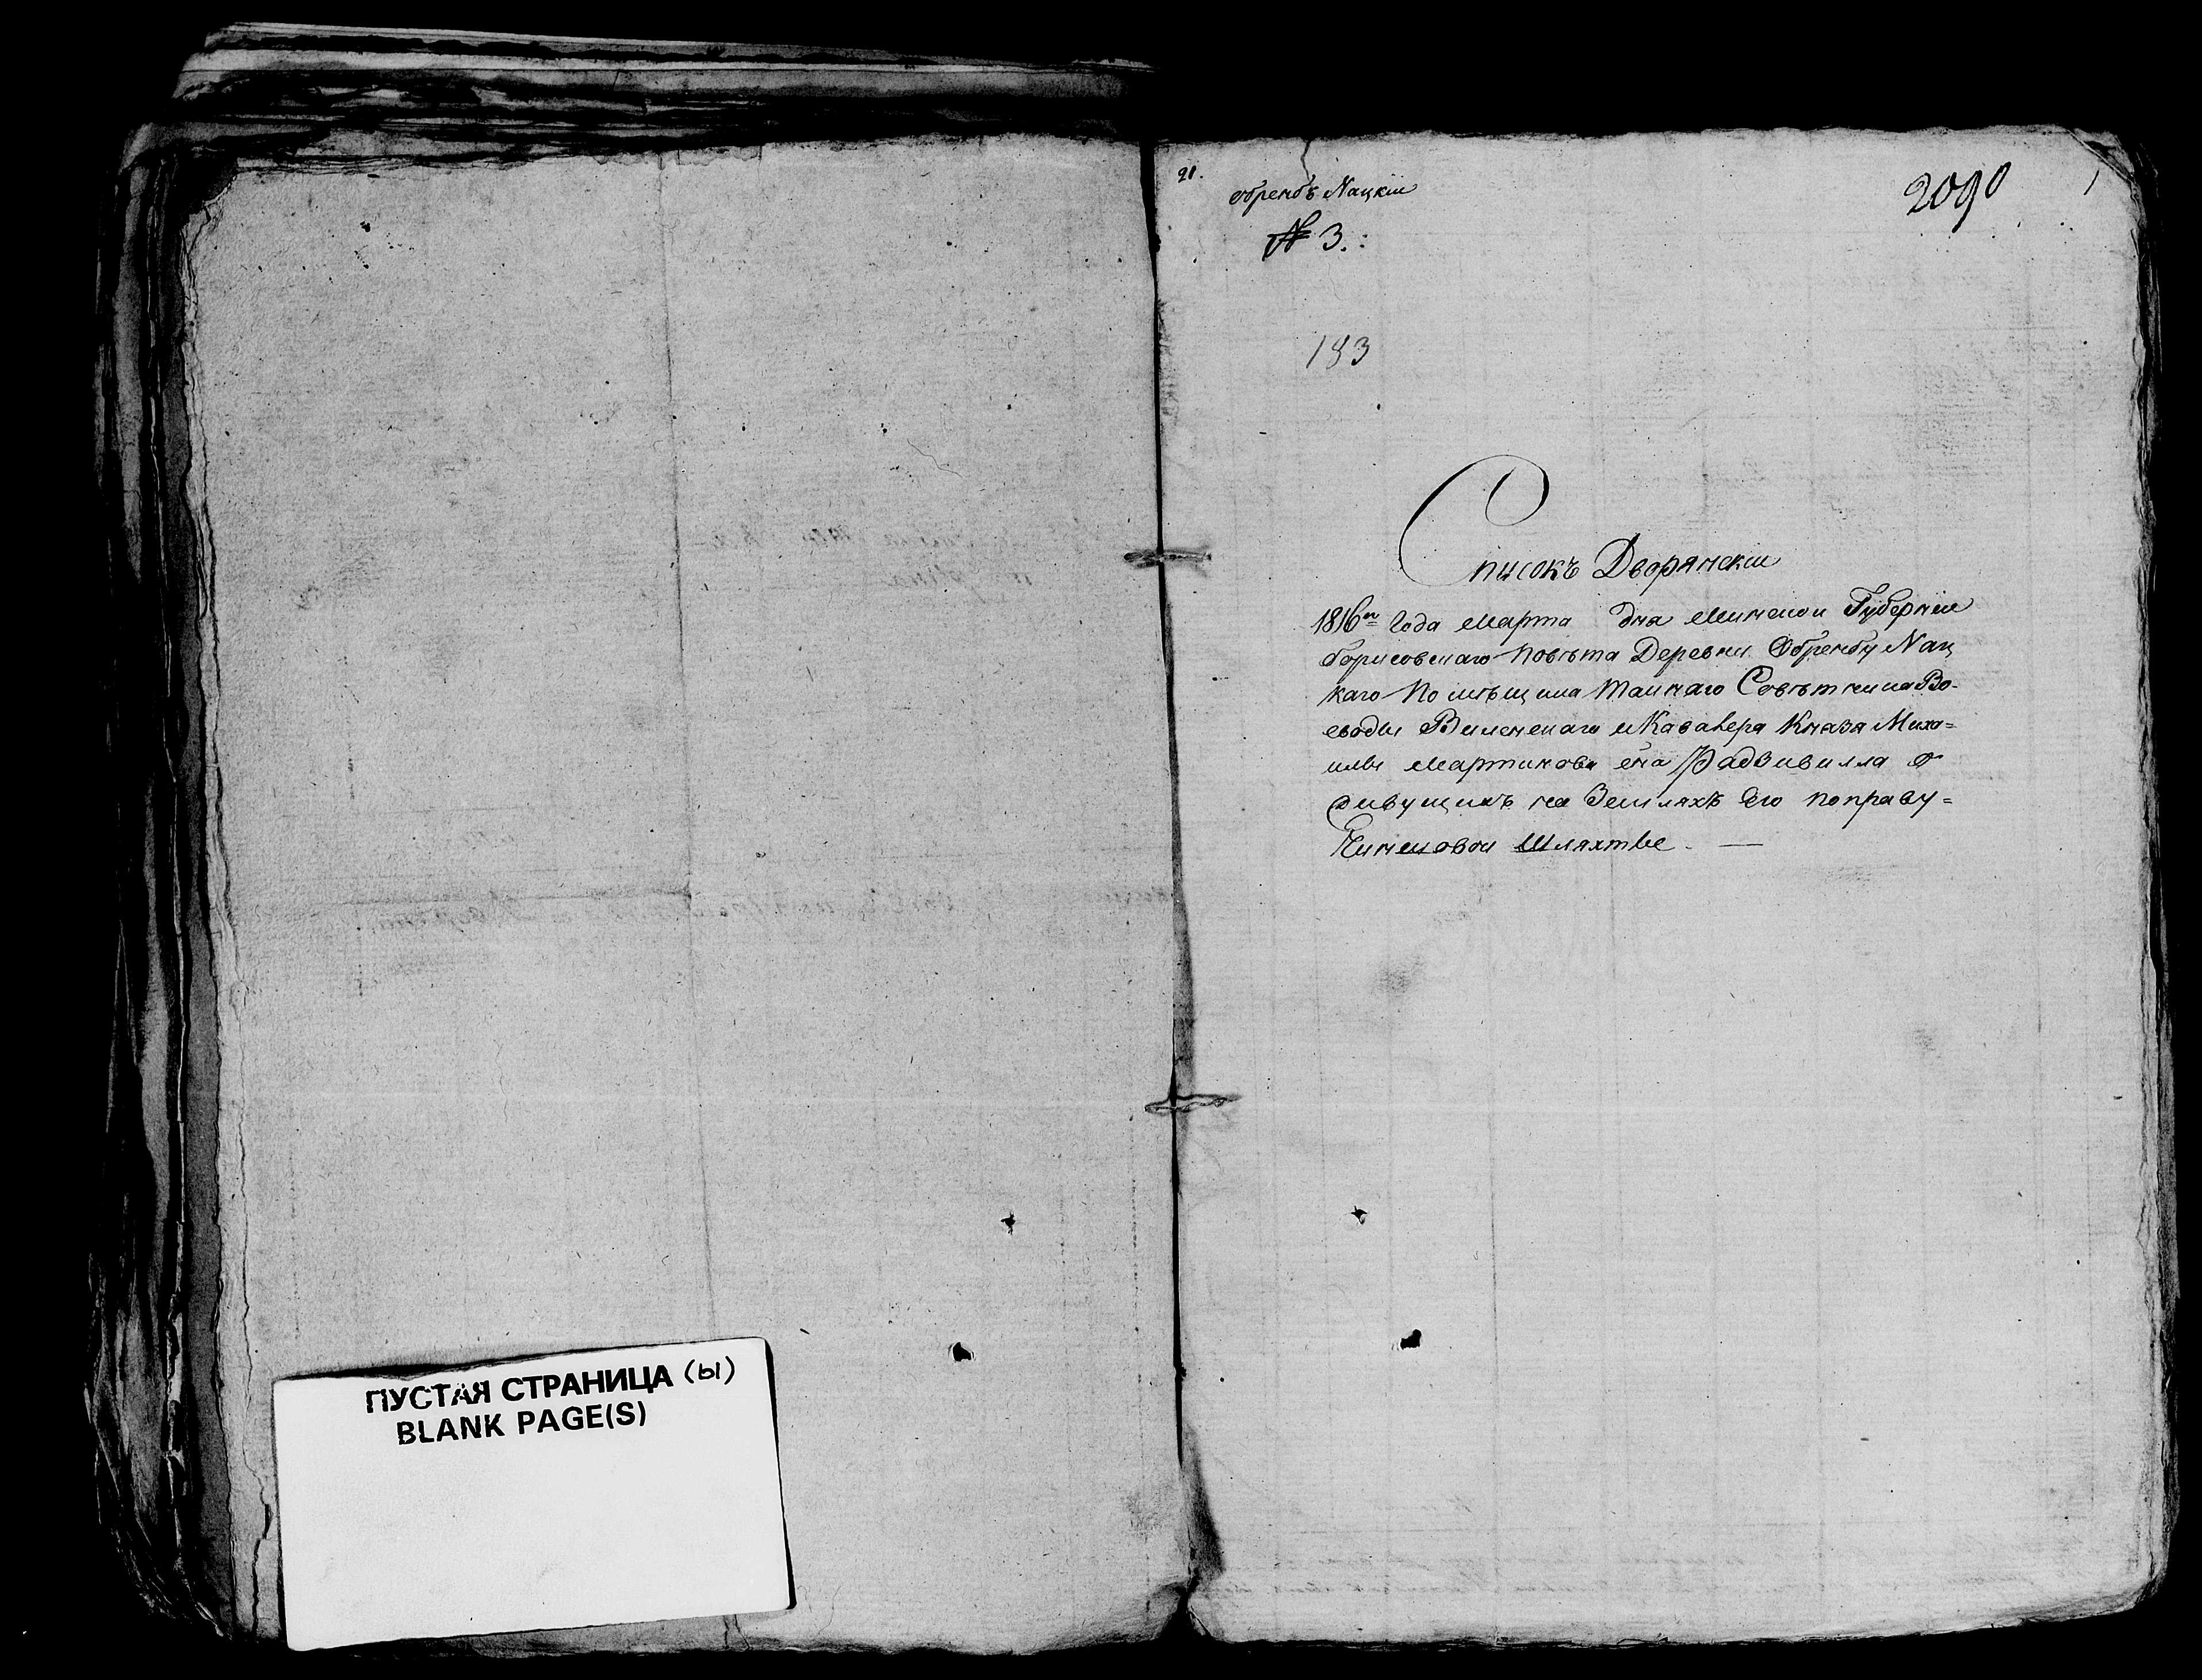 ПУСТАЯ СТРАНИЦА (ы)
BLANK PAGE(S)
21.
обрембъ Нацкіи
№ 3.:
2090
1
183
Списокъ Дворянскіи
1816го Года марта дня Минскои Губерніи
борисовскаго повѣта Деревни Обрембу Нац
каго помѣщика таинаго Совѣтника Во-
еводы Виленскаго и Кавалера Князя Миха=
илы мартинова сна Радзивилла о
живущихъ на Земляхъ Его по праву=
Чиншовои Шляхтѣ. —